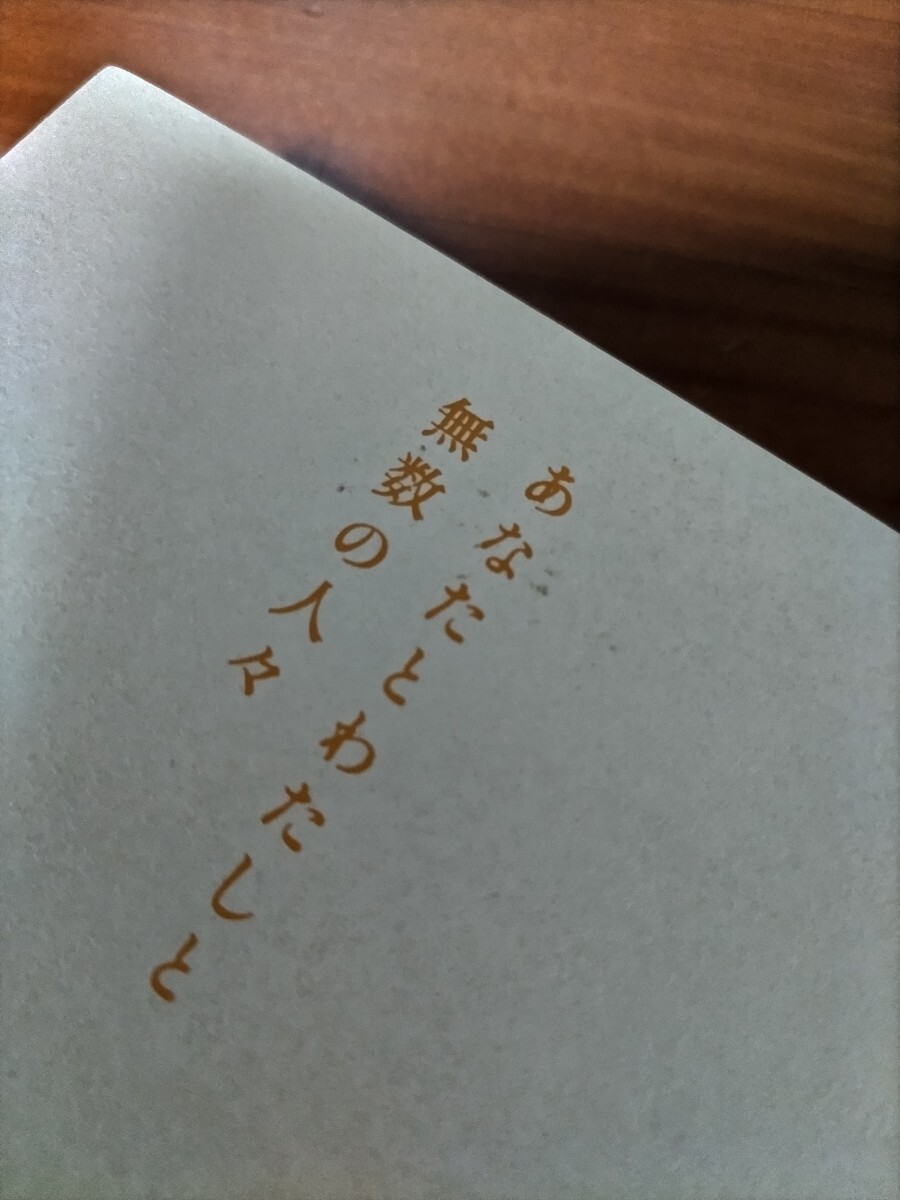 あなたとわたしと
無数の人々